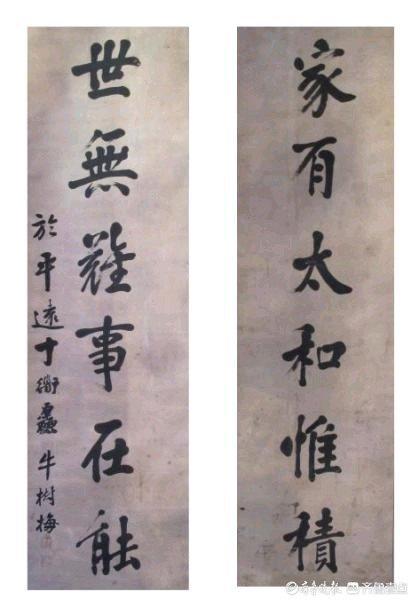 家有太和惟積
世無難事在能
於平遠 衙齋牛樹梅
齐鲁晚报 齐鲁壹点